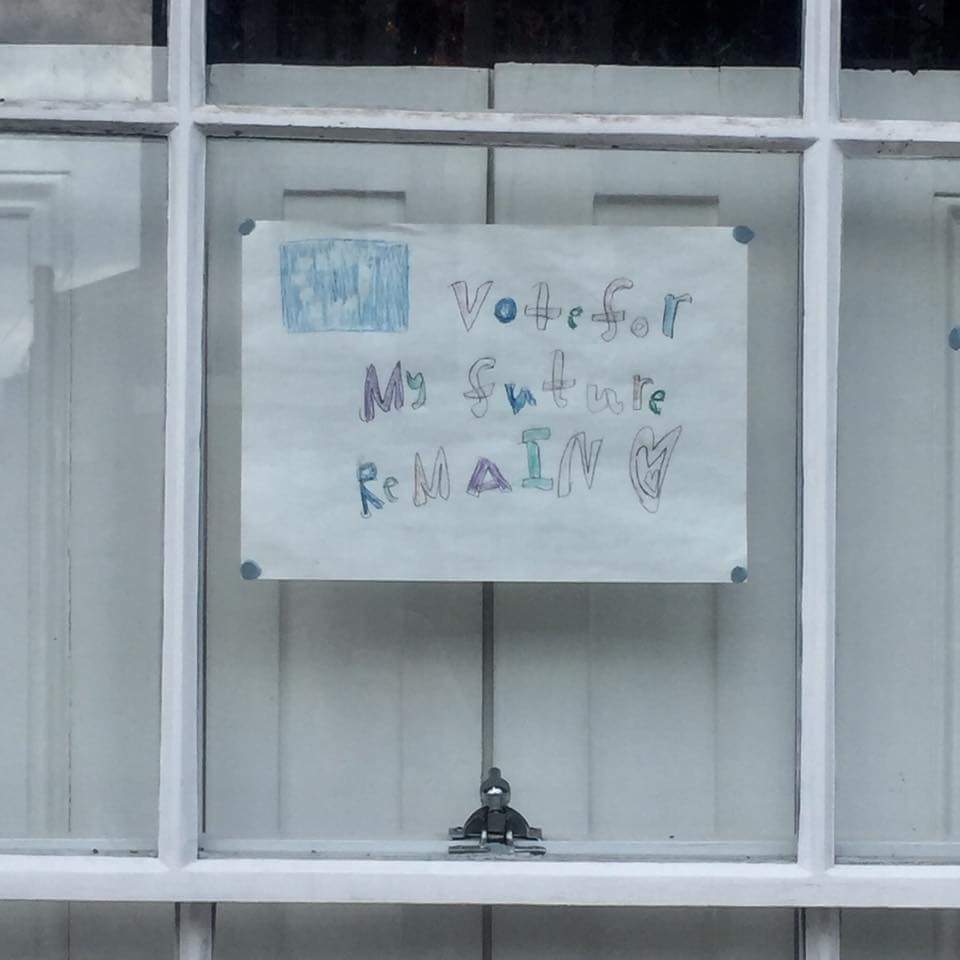 Vote for
My future
ReMAIN